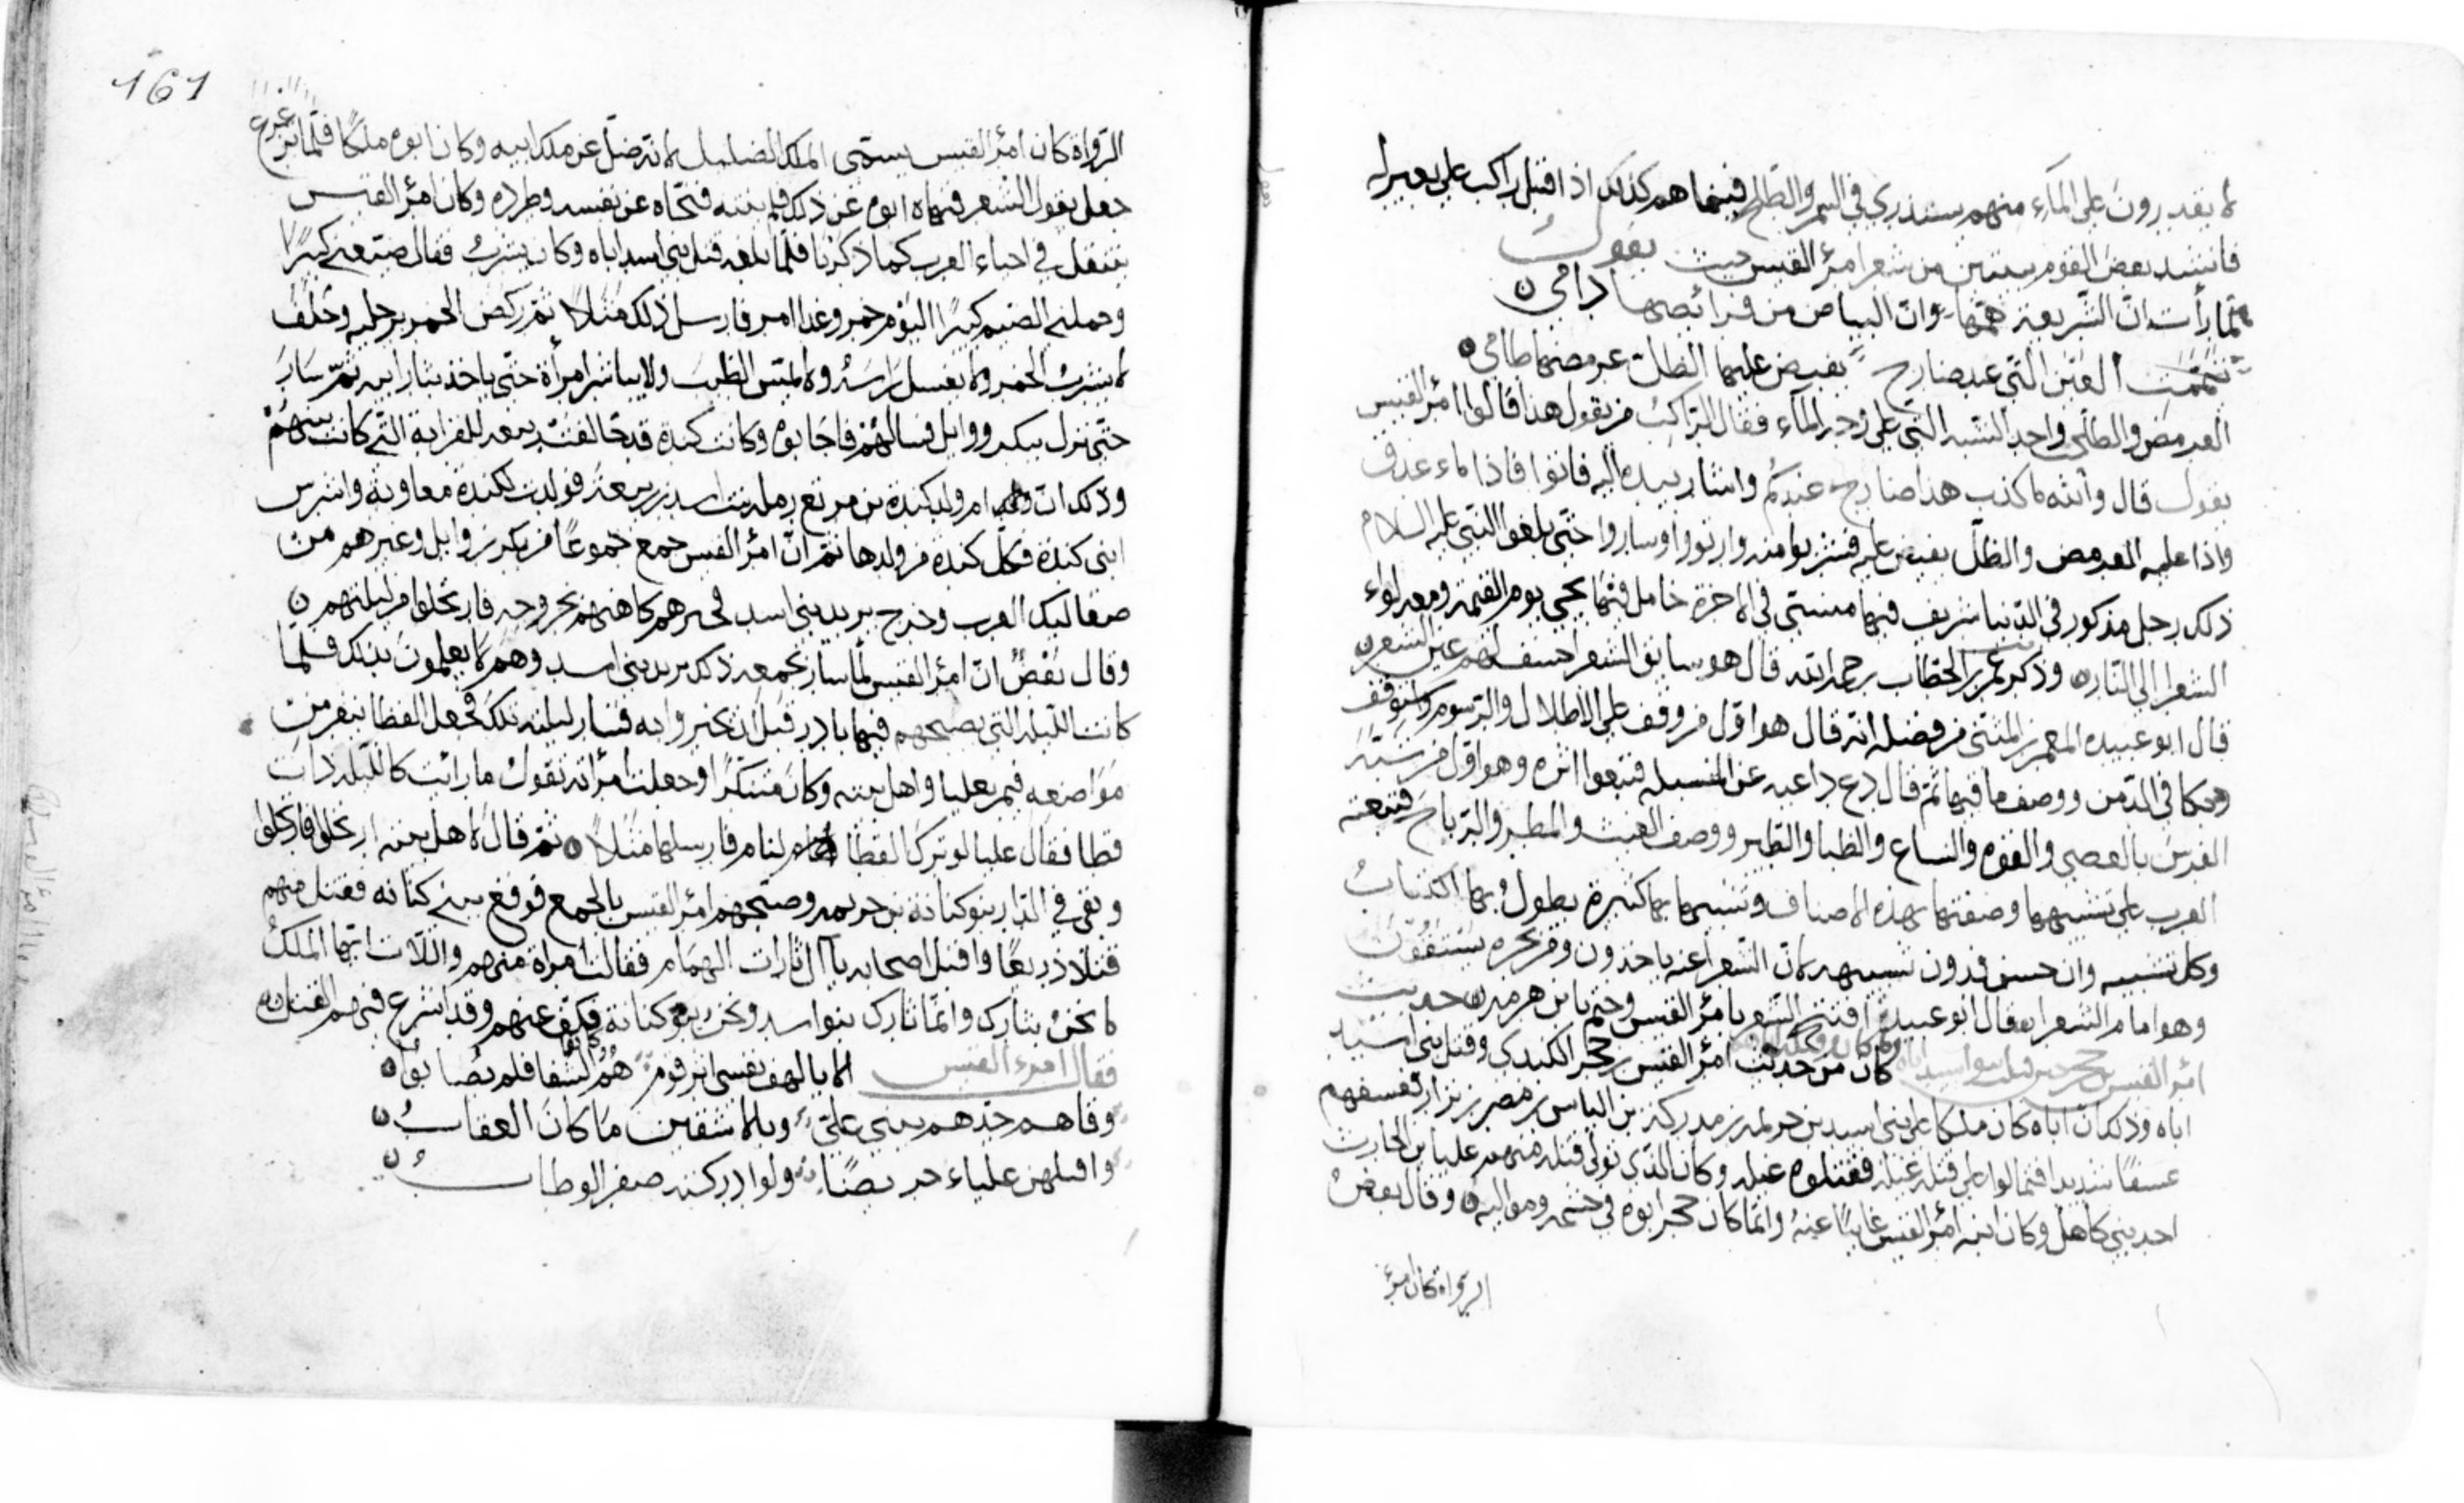 لا يقدرون على الماء منهم يستذري في السمر والطلح فبينما هم كذلك اذ اقبل راكب على بعير له
فانشد بعض القوم بيتين من شعر امرؤ القيس حيث يقول
لما رأت ان الشريعة همها وان البياض من فرائصها دامي
تيممت العين التي عند ضارج يفيض عليها الظل عرمضها طامي
العرمض والطلحب واحد الشبه التي على وجه الماء فقال الراكب من يقول هذا قالوا امرؤ القيس
يقول قال والله ما كذب هذا ضارج عندكم واشار بيده اليه فاتوا فاذا ماء غدق
واذا عليه العرمض والظل يفيض عليه فشربوا منه وارتووا وساروا حتى بلغوا النبي عليه السلام
ذلك رجل مذكور في الدنيا شريف فيها منسي في الاخرة خامل فيها يجي يوم القيمة ومعه لواء
الشعرا الى النار وذكر عمر بن الخطاب رحمه الله قال هو سابق الشعرا خسف لهم عين الشعر
قال ابو عبيده المعمر بن المثنى من فضله انه قال هو اول من وقف على الاطلال والرسوم
وبكا في الدمن ووصف ما فيها ثم قال دع ذا عنه فتبعوا اثره وهو اول من شبه
الفرس بالعصي والقوه والسباع والظبا والطير ووصف الغيث والمطر والرياح فتبعته
العرب على تشبيهها وصفتها بهذه الاصناف وتشبيها بها كثيرة يطول بها الكتاب
وكل تشبيه وان حسن فدون تشبيهه لان الشعرا عنه ياخذون ومن بحره يستقون
وهو امام الشعرا يقال ابو عبيدة افتتح الشعر بامرؤ القيس وختم بابن هرمه حديث
امرؤ القيس كان من حديث امرؤ القيس بن حجر الكندي وقتل بني اسد
اباه وذلك ان اباه كان ملكا على بني اسد بن خزيمه بن مدركة بن الياس بن مضر بن نزار فعسفهم
عسفا شديدا فتمالوا على قتله غيله فقتلوه غيله وكان الذي تولى قتله منهم علبا بن الحارث
احد بني كاهل وكان ابنه امرؤ القيس غايبا عنه وانما كان حجر ابوه في حشمه ومواليه وقال بعض
الرواة كان امرؤ
161
الرواة كان امرؤ القيس يسمى الملك الضليل لانه ضل عن ملك ابيه وكان ابوه ملكا فلما ترعرع
جعل يقول الشعر فنهاه ابوه عن ذلك فلم ينته فنحاه عن نفسه وطرده وكان امرؤ القيس
ينتقل في احياء العرب كما ذكرنا فلما بلغه قتل بني اسد اباه وكان يشرب فقال ضيعني كبيرا
وحملني الضيم كبيرا اليوم خمر وغدا امر فارسل ذلك مثلا ثم ركض الخمر برجليه وحلف
لا يشرب الخمر ولا يغسل راسه ولا يمس الطيب ولا يباشر امرأة حتى ياخذ بثار ابيه ثم سار
حتى نزل ببكر ووايل فسالهم فاجابوه وكانت كندة قد حالفت ربيعه للقرابة التي كانت بينهم
وذلك ان ام ولد كندة بن مرتع رملة بنت اسد بن ربيعة فولدت لكندة معاوية واشرس
ابني كندة فكل كندة من ولدها ثم ان امرؤ القيس جمع جموعا من بكر بن وايل وغيرهم من
صعاليك العرب وخرج يريد بني اسد فخبرهم كاهنهم بخروجه فارتحلوا من ليلتهم
وقال بعض ان امرؤ القيس لما سار بجمعه ذلك يريد بني اسد وهم لا يعلمون بذلك فلما
كانت الليلة التي يصبحهم فيها بادر قبل ان يخبروا به فسار ليلته تلك فجعل القطا ينفر من
مواضعه فيمر بعلبا واهل بيته وكان متنكرا وجعلت امرأته تقول ما رايت كالليلة ذات
قطا فقال علبا لو ترك القطا لنام فارسلها مثلا ثم قال لاهل بيته ارتحلوا فارتحلوا
وبقي في الدار بنو كنانة بن خزيمه وصبحهم امرؤ القيس بالجمع فوقع ببني كنانه فقتل منهم
قتلا ذريعا واقبل اصحابه يا آل ثارات الهمام فقالت امراة منهم واللات ايها الملك
ما نحن بثارك وانما ثارك بنو اسد ونحن بنو كنانة فكف عنهم وقد اشرع فيهم القتل
فقال امرء القيس الا يا لهف نفسي اثر قوم هم كانوا الشفا فلم يصابوا
وقاهم جدهم ببني علي وبالاشقين ما كان العقاب
وافلتهن علباء جريضا ولو ادركنه صفر الوطاب